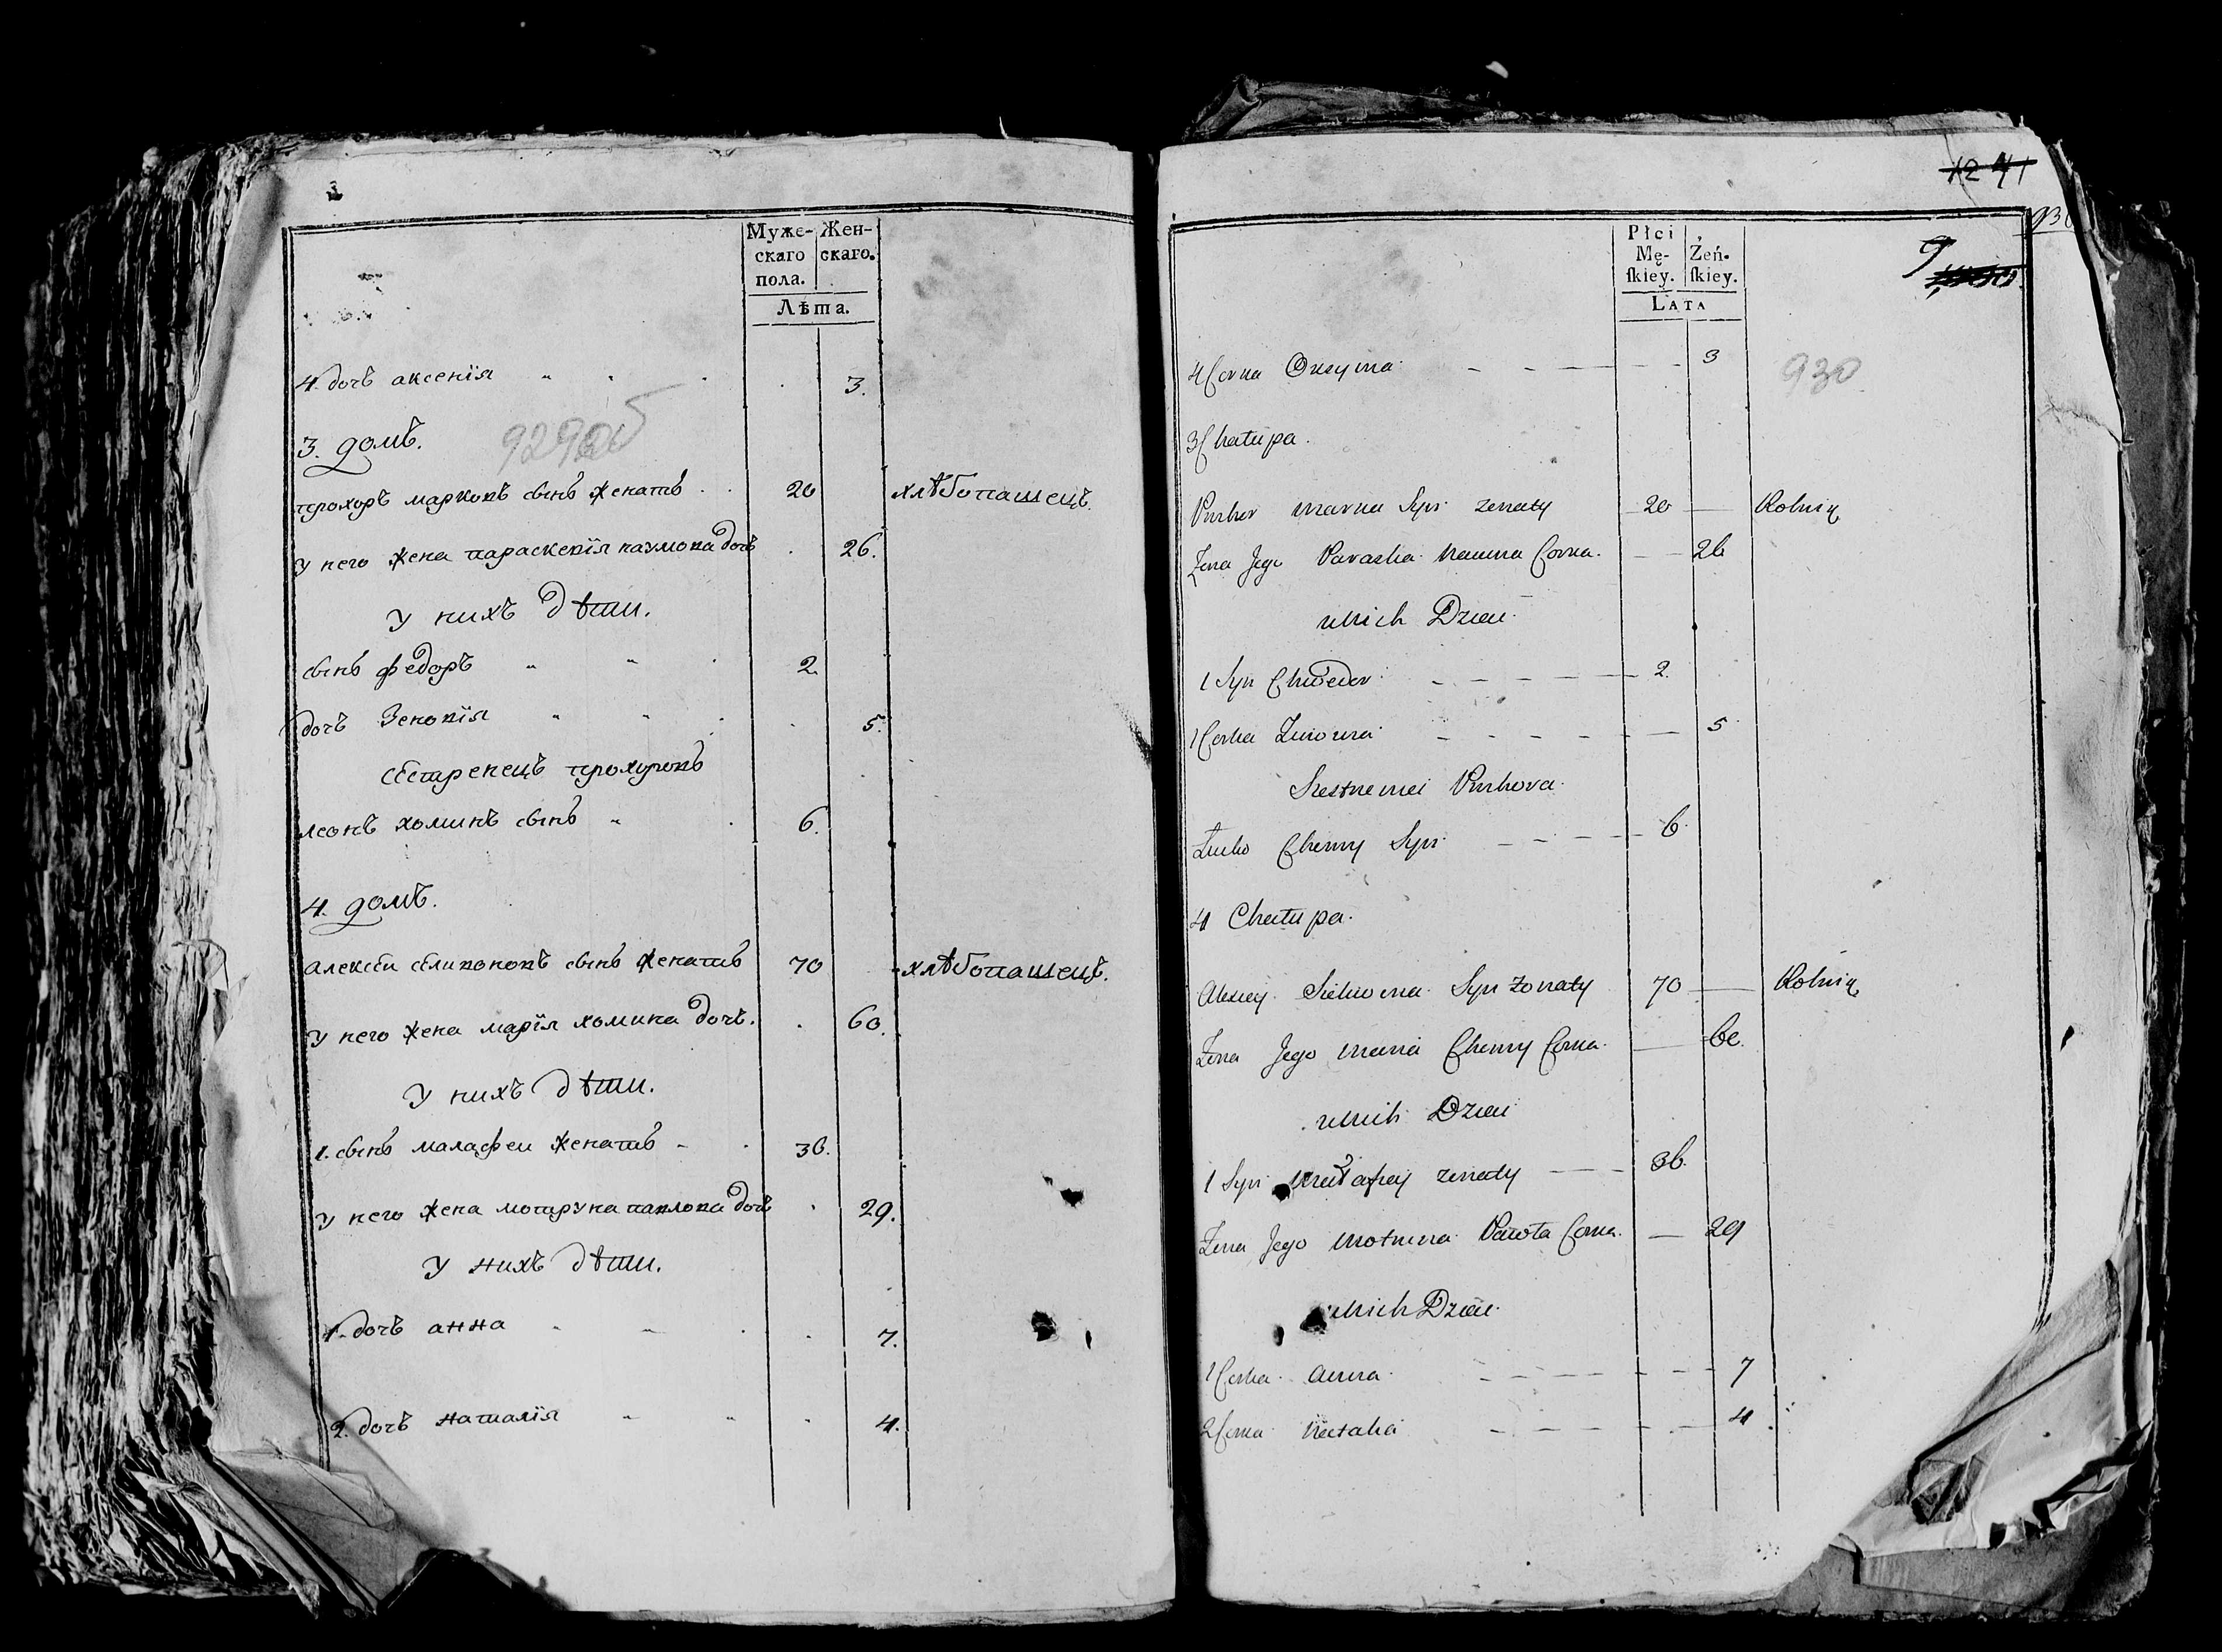 Муже-
скаго
пола.
Жен-
скаго.
Лѣта.
4. дочь аксенія 3.
929об
3. домъ.
прохоръ марковъ сынъ женатъ 26 хлѣбопашецъ.
у него жена параскевія наумова дочь 26.
у нихъ дѣти.
сынъ федоръ 2.
дочь Зеновія 5.
сестренецъ прохуровъ
леонъ хоминъ сынъ 6.
4. домъ.
алексѣи женатъ 70 хлѣбопашецъ.
у него жена марія хомина дочь. 60.
у нихъ дѣти.
1. сынъ малафеи женатъ 36.
у него жена мотруна павлова дочь 29.
у нихъ дѣти.
1. дочь анна 7.
2. дочь наталія 4.
1241
930
9
Płci
Mę-
ſkiey.
Żeń-
ſkiey.
LATA
4 Corka Oxsynia 3
930
3 Chałupa.
Prohor Marka Syn żenaty 26 Rolnik
Zena Jego Paraska Nauma Corka 26
u Nich Dzieci
1 Syn Chwedor 2.
1 Corka Zinowia 5
Siestreniec Prohora
Chomy Syn 6
4 Chałupa.
Alexiey Syn żonaty 70 Rolnik
Zena Jego Maria Chomy Corka 60.
u Nich Dzieci
1 Syn Małafiey żenaty 36.
Zena Jego Motruna Pawła Corka 29
u Nich Dzieci
1 Corka Anna 7
2 Corka Natalia 4